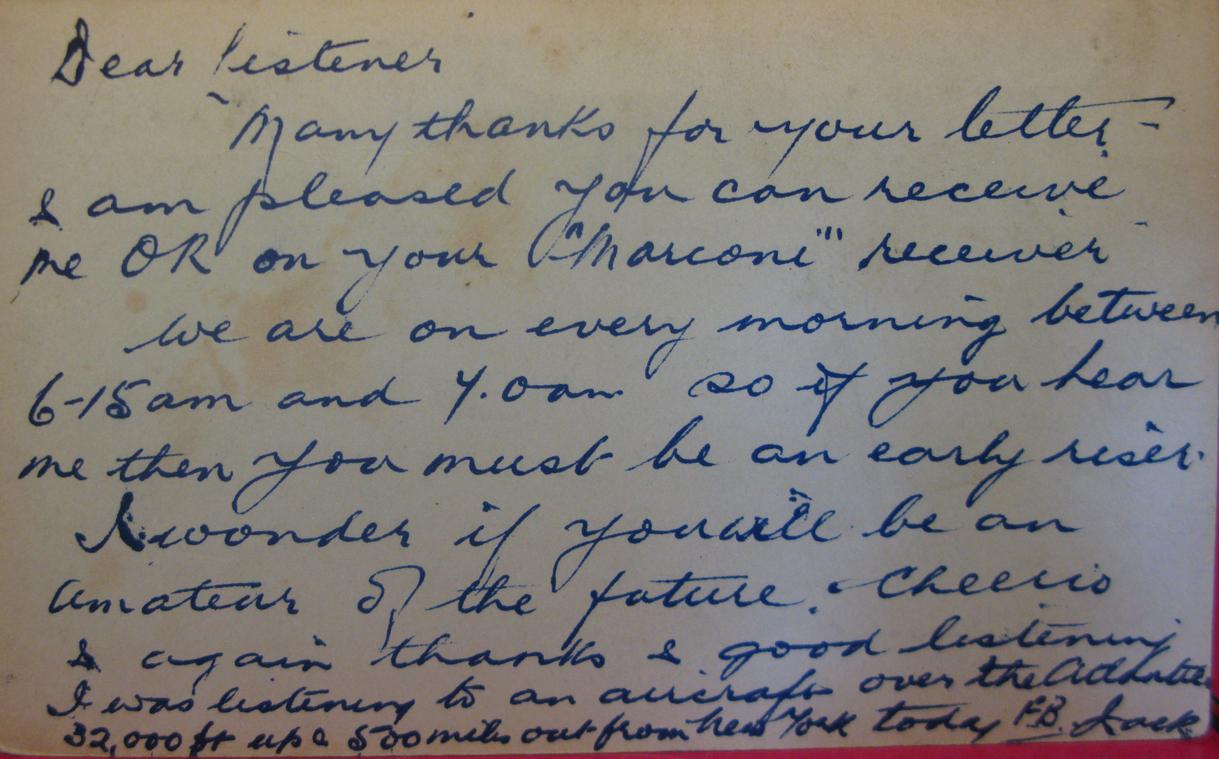 Dear listener
Many thanks for your letter -
I am pleased you can receive
me OR on your "Marconi" receiver
we are on every morning between
6-15am and 7.0am so if you hear
me then you must be an early riser.
I wonder if you will be an
amateur of the future. Cheerio
& again thanks & good listening
I was listening to an aircraft over the
32,000 ft up & 500 miles out from New York today F.B. Jack